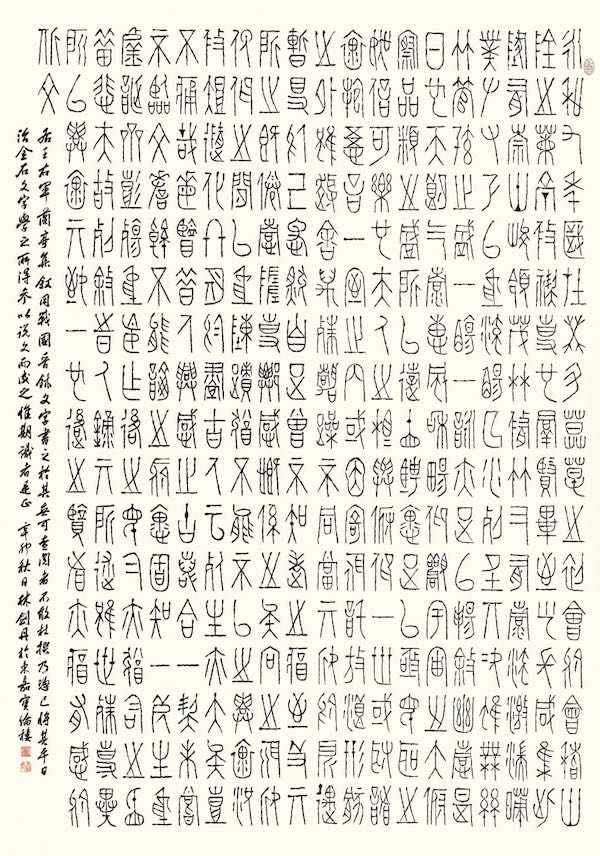 永和九年歲在癸丑暮春之初會于會稽山
陰之蘭亭脩禊事也羣賢畢至少長咸集此
地有崇山峻領茂林脩竹又有清流激湍映
帶左右引以為流觴曲水列坐其次雖無絲
竹管弦之盛一觴一詠亦足以暢敘幽情是
日也天朗氣清惠風和暢仰觀宇宙之大俯
察品類之盛所以遊目騁懷足以極視聽之
娛信可樂也夫人之相與俯仰一世或取諸
懷抱悟言一室之內或因寄所託放浪形骸
之外雖趣舍萬殊靜躁不同當其欣於所遇
暫得於己快然自足曾不知老之將至及其
所之既惓情隨事遷感慨係之矣向之所欣
俛仰之間以為陳跡猶不能不以之興懷況
脩短隨化終期於盡古人云死生亦大矣豈
不痛哉每覽昔人興感之由若合一契未嘗
不臨文嗟悼不能喻之於懷固知一死生為
虛誕齊彭殤為妄作後之視今亦由今之視
昔悲夫故列敘時人錄其所述雖世殊事異
所以興懷其致一也後之覽者亦將有感於
斯文
右王右軍蘭亭集敘用戰國晉系文字書之於其無可查閱者不敢杜撰乃憑已將其平日
治金石文字學之所得參以說文而成之惟期識者是正 辛卯秋日林劍丹於東嘉寶綸樓